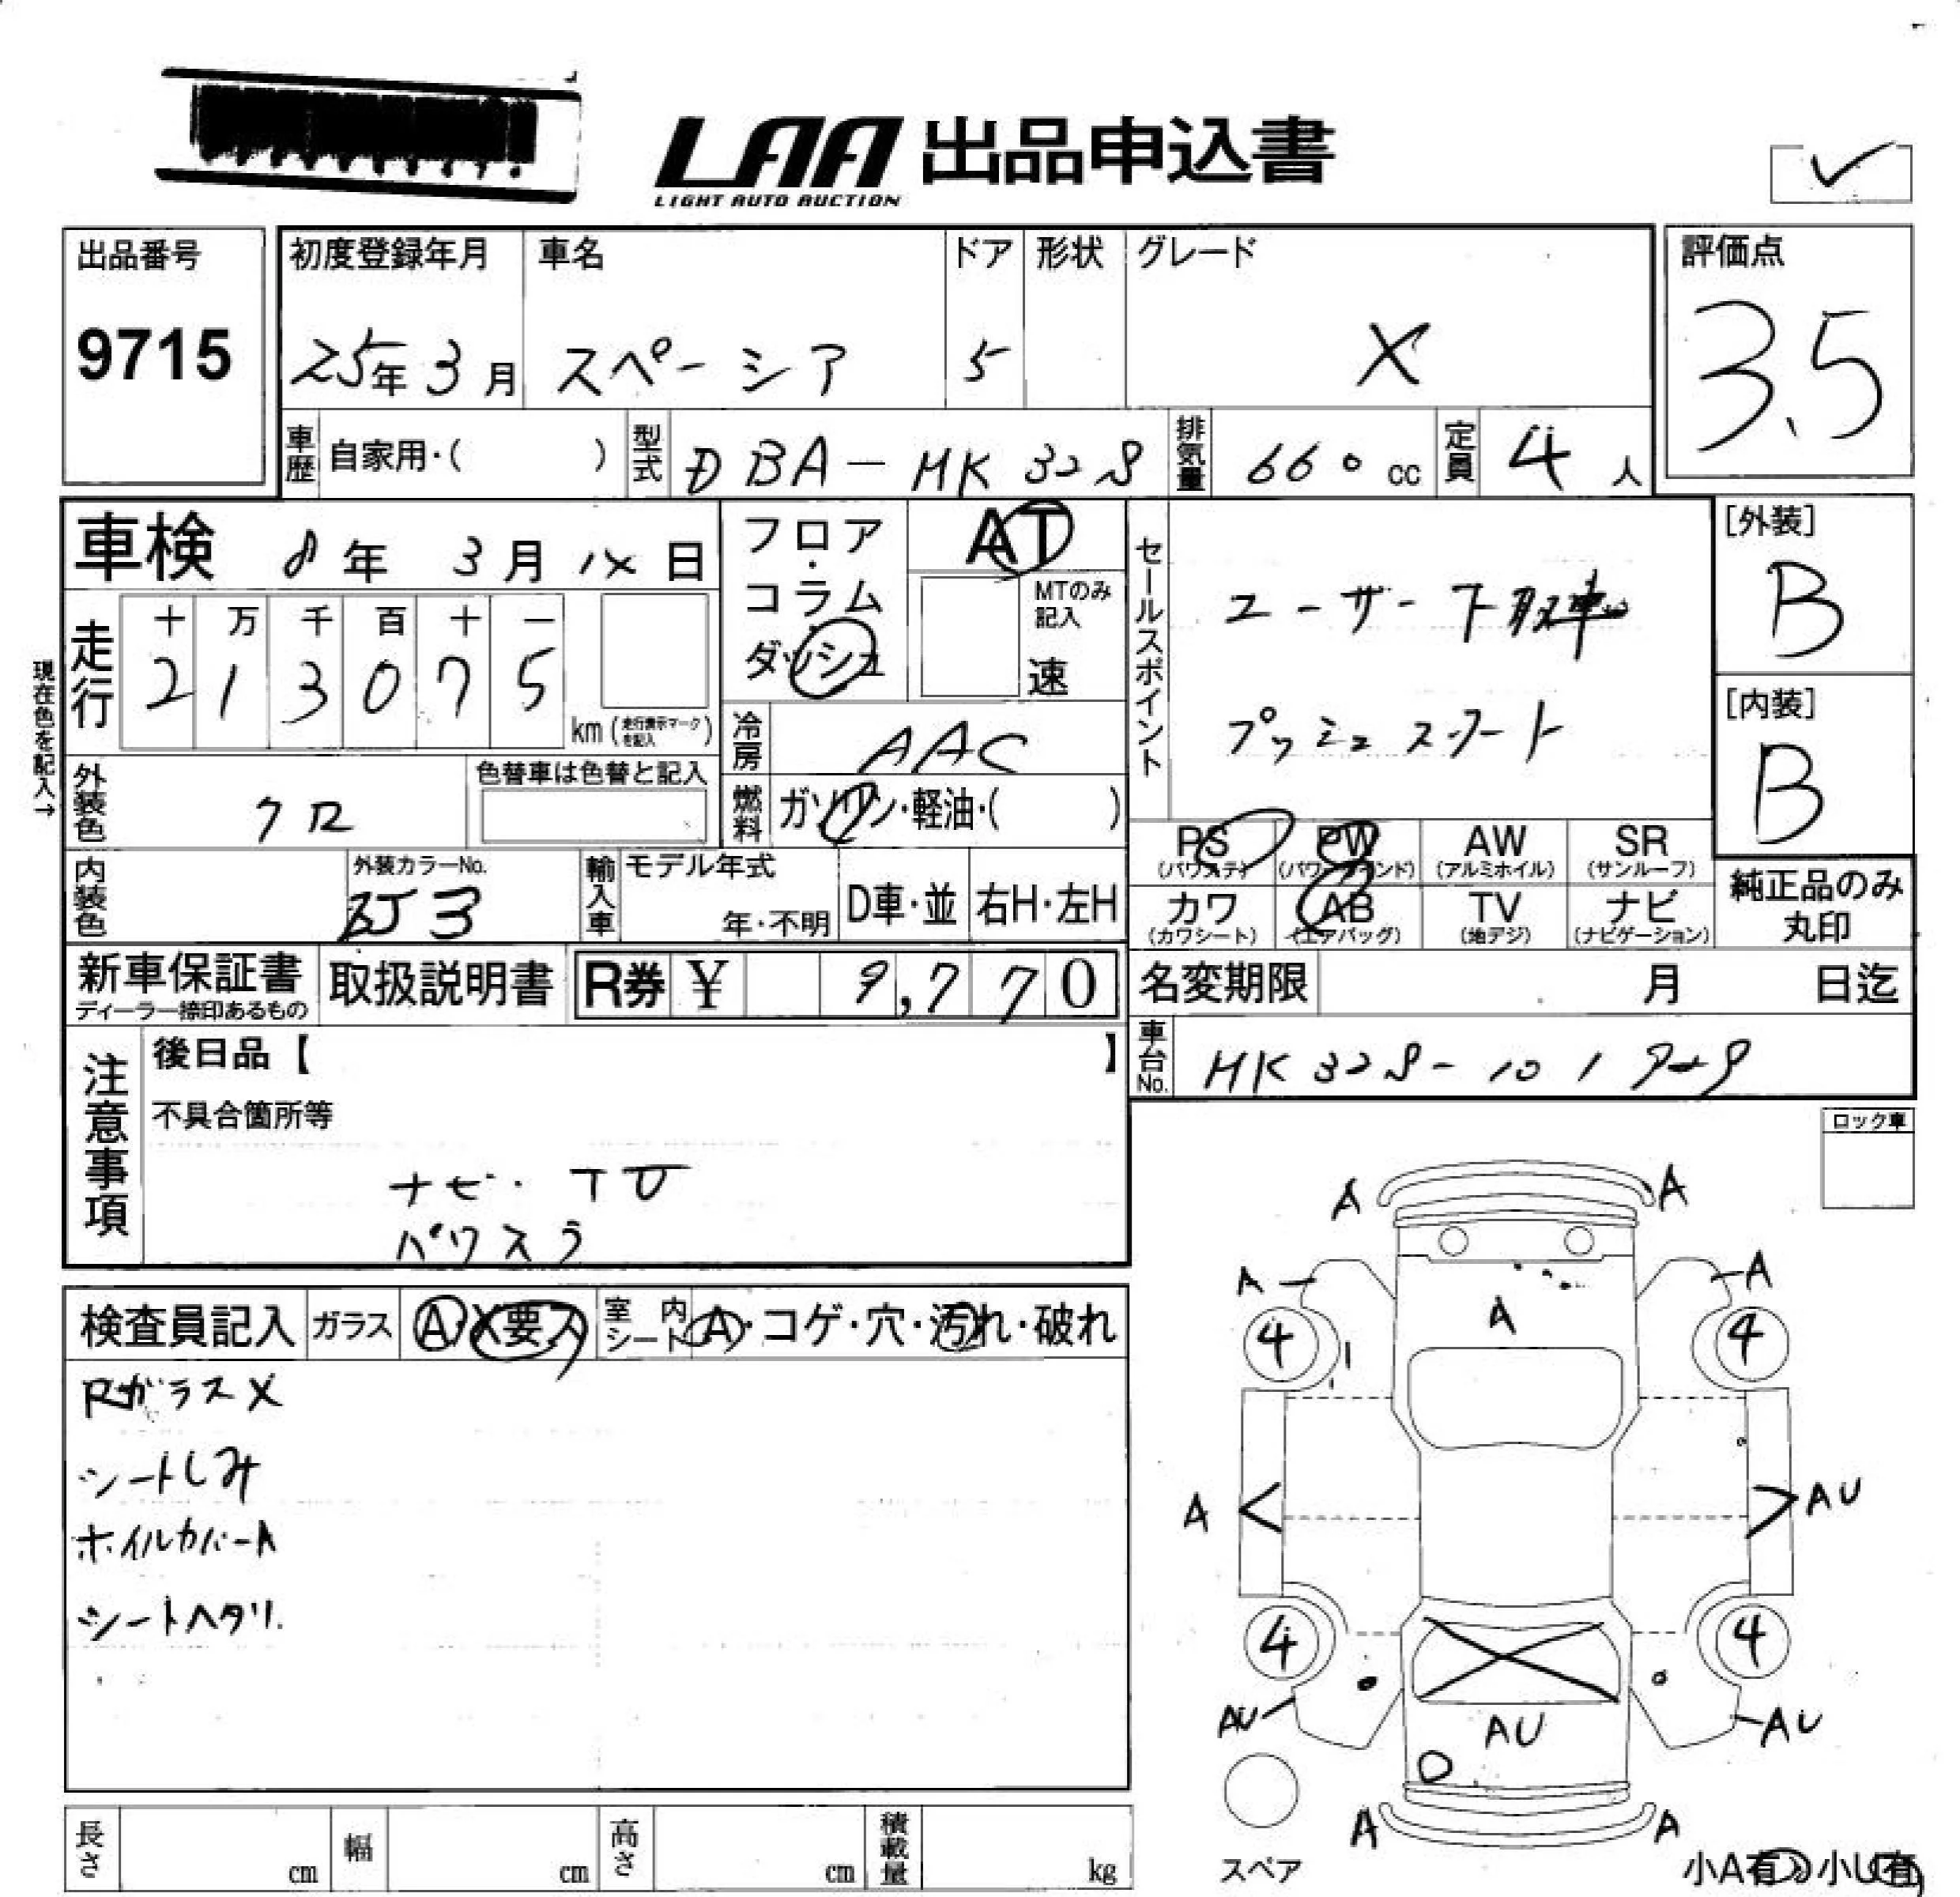 LAA 出品申込書
LIGHT AUTO AUCTION
出品番号
9715
初度登録年月
25年 3月
車名
スペーシア
ドア
5
形状
グレード
X
評価点
3.5
車歴 自家用・( )
型式 DBA-MK32S
排気量 660 cc
定員 4人
車検 8年 3月 日
フロア・コラム
ダッシュ
AT
MTのみ記入
速
現在色を記入→
走行
十 万 千 百 十 一
2 1 3 0 7 5
km (走行表示マークを記入)
冷房 AAC
燃料 ガソリン・軽油・( )
セールスポイント
ユーザー下取車
プッシュスタート
[外装]
B
[内装]
B
外装色 クロ
色替車は色替と記入
内装色
外装カラーNo.
ZJ3
輸入車
モデル年式
年・不明
D車・並
右H・左H
PS (パワステ)
PW (パワーウインド)
AW (アルミホイル)
SR (サンルーフ)
カワ (カワシート)
AB (エアバッグ)
TV (地デジ)
ナビ (ナビゲーション)
純正品のみ
丸印
新車保証書
ディーラー捺印あるもの
取扱説明書
R券 ¥ 9,770
名変期限 月 日迄
車台No. MK32S-101
注意事項
後日品【 】
不具合箇所等
ナビ・TV
パワスラ
ロック車
検査員記入
ガラス A・X要ス
室内シート A・コゲ・穴・汚れ・破れ
Rガラス X
シートしみ
ホイルカバーA
シートヘタリ.
A A
A A
A
4 4
A AU
4 4
AU AU
AU
A A
スペア
小A有 小U有
長さ cm
幅 cm
高さ cm
積載量 kg